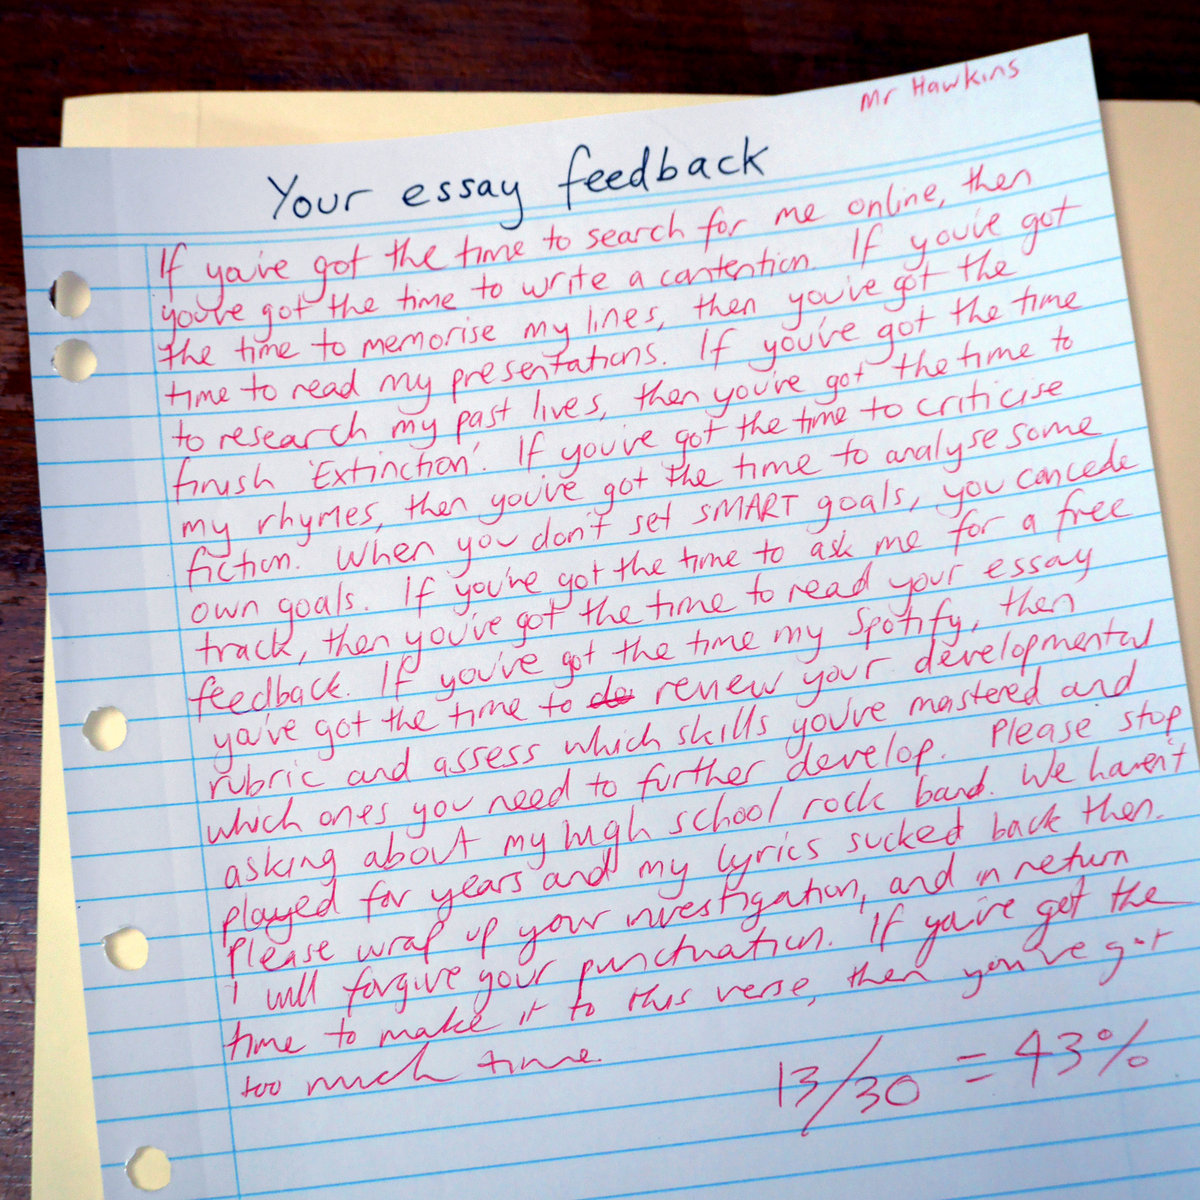 Mr Hawkins
Your essay feedback
If you've got the time to search for me online, then
you've got the time to write a contention. If you've got
the time to memorise my lines, then you've got the
time to read my presentations. If you've got the time
to research my past lives, then you've got the time to
finish 'Extinction'. If you've got the time to criticise
my rhymes, then you've got the time to analyse some
fiction. When you don't set SMART goals, you concede
own goals. If you've got the time to ask me for a free
track, then you've got the time to read your essay
feedback. If you've got the time my Spotify, then
you've got the time to do review your developmental
rubric and assess which skills you've mastered and
which ones you need to further develop. Please stop
asking about my high school rock band. We haven't
played for years and my lyrics sucked back then.
Please wrap up your investigation, and in return
I will forgive your punctuation. If you've got the
time to make it to this verse, then you've got
too much time.
13/30 = 43%